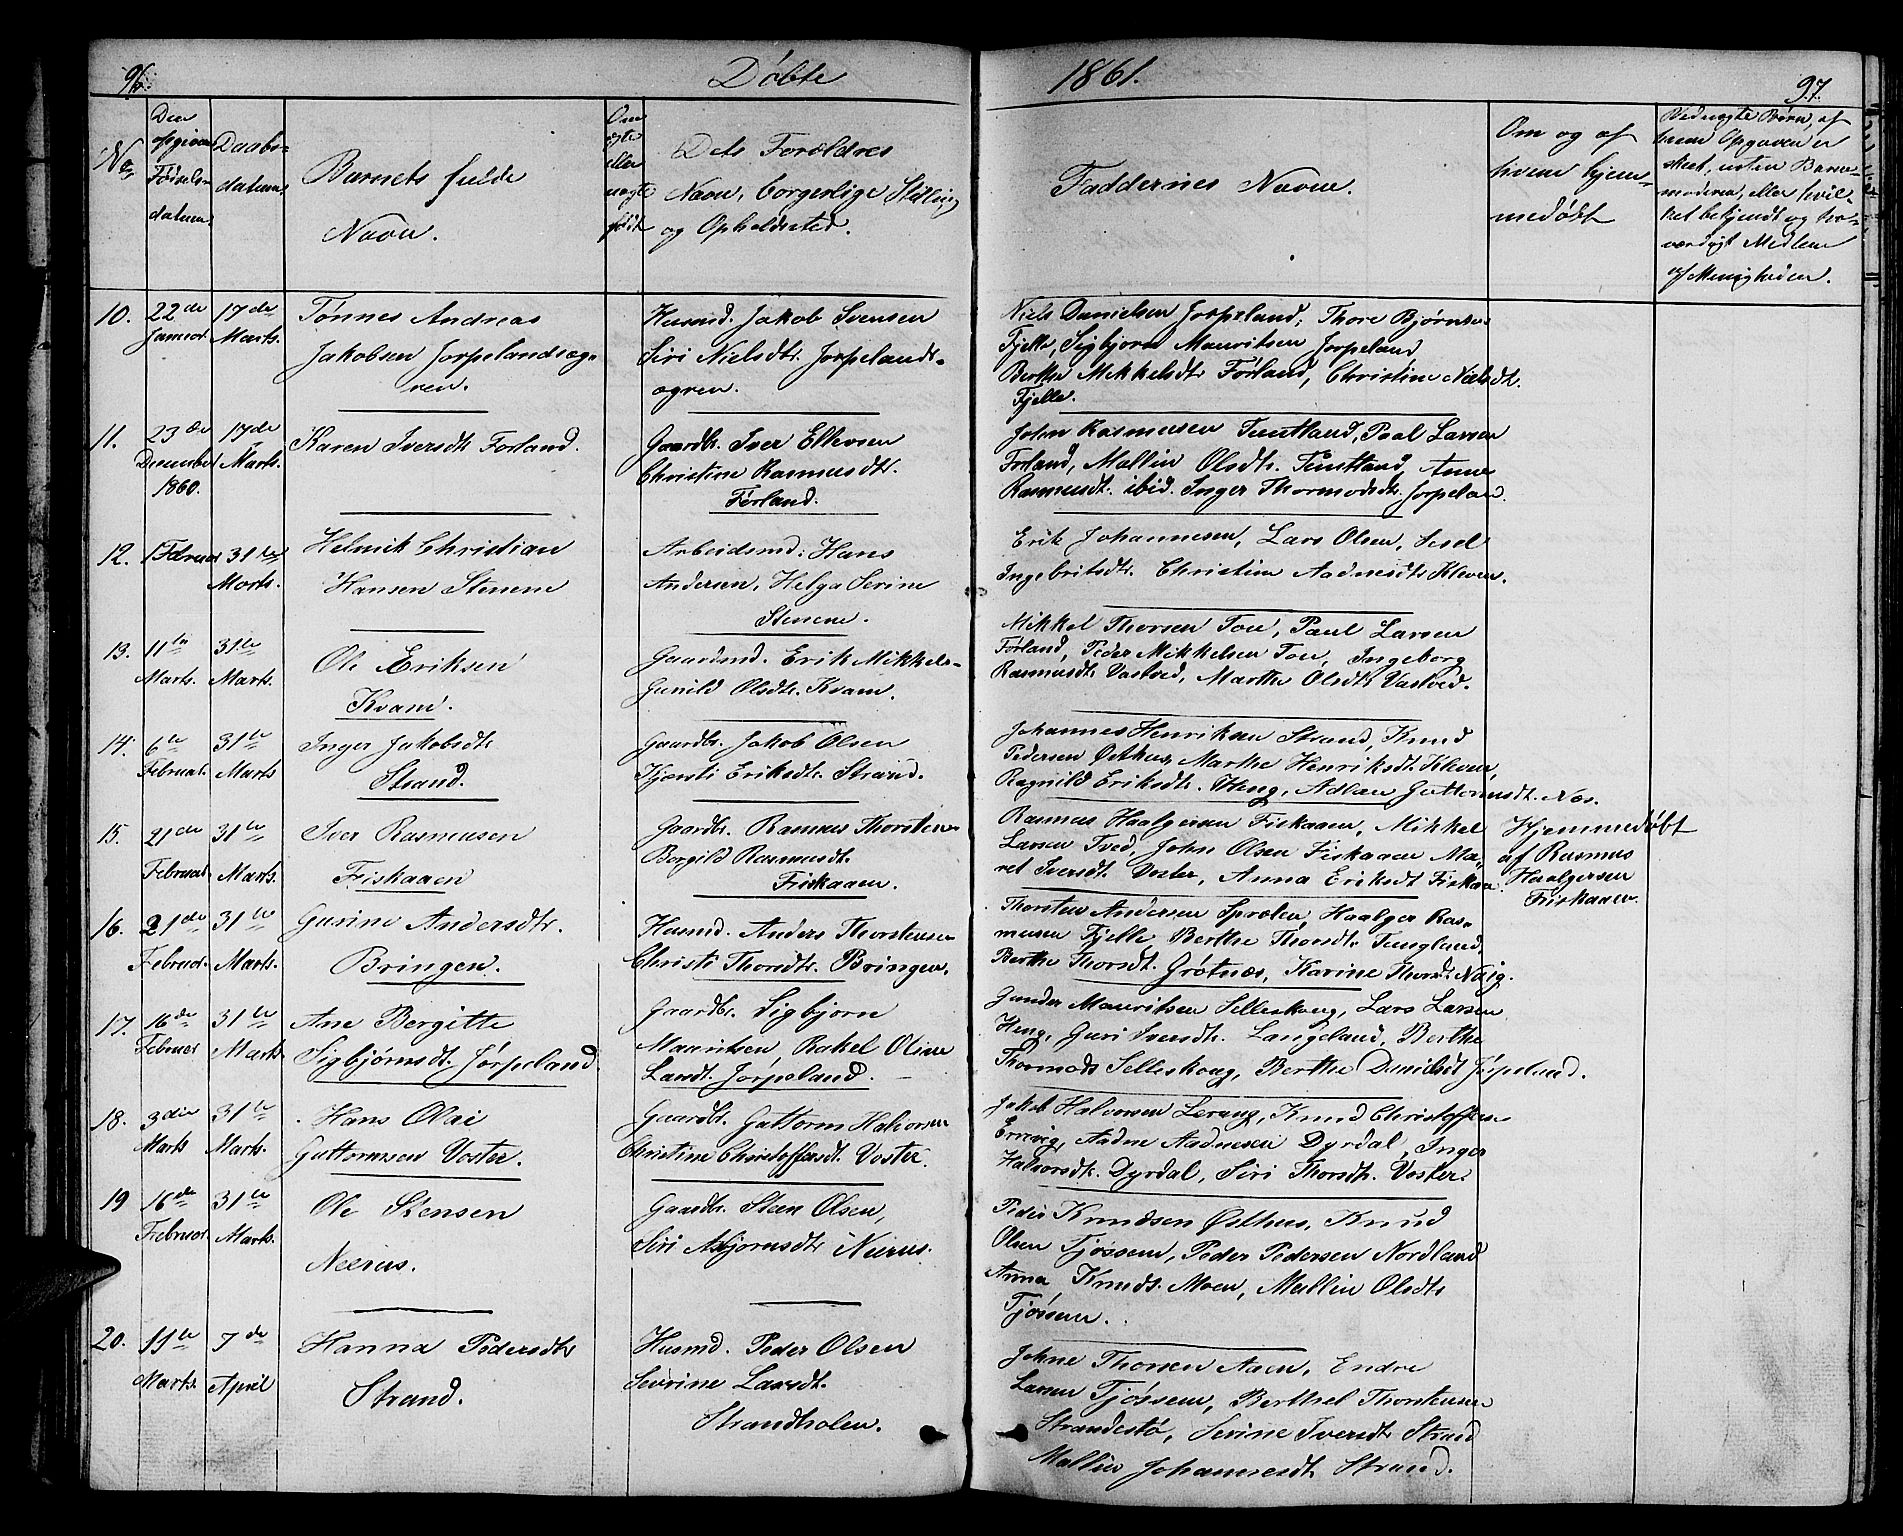 96.
Døbte
1861.
97.
No
Den opgivne Fødselsdatum.
Daabsdatum.
Barnets fulde Navn.
Om ægte eller uægte født
Dets Forældres Navn, borgerlige Stilling og Opholdssted.
Faddernes Navne.
Om og af hvem hjemmedøbt
Ved uægte Børn, af hvem Opgaven er skeet, uten Barnemoderen, eller hvilket bekjendt og troværdigt Medlem af Menigheden.
10. 22de Januar. 17de Marts.
Tønnes Andreas
Jakobsen Jørpelandsøgren.
Husmd. Jakob Svensen
Siri Nielsdtr. Jørpelandsøgren.
Niels Danielsen Jørpeland, Thore Bjørnsen
Fjelle, Sigbjørn Mauritsen Jørpeland
Berthe Mikkelsdtr Førland, Christine Nielsdt.
Fjelle.
11. 23de December 1860. 17de Marts.
Karen Iversdtr Førland.
Gaardbr. Iver Ellevsen
Christine Rasmusdtr.
Førland.
John Rasmussen Tuntland, Paul Larsen
Førland, Mallin Olsdtr. Tuntland, Anne
Rasmusdt. ibid. Inger Thormodsdtr. Jørpeland.
12. 1 Februar 31te Marts.
Helmik Christian
Hansen Stenene
Arbeidsmd: Hans
Andersen, Helga Serine
Stenene.
Erik Johannesen, Lars Olsen, Sesel
Ingebritsdtr. Christine Aadnesdtr Kleven.
13. 11te Marts. 31te Marts.
Ole Eriksen
Kvam.
Gaardmd. Erik Mikkels-
Gunild Olsdtr. Kvam.
Mikkel Thorsen Tou, Paul Larsen
Førland, Peder Mikkelsen Tou, Ingeborg
Rasmusdtr Vastved, Marthe Olsdtr Vastved.
14. 6te Februar. 31te Marts.
Inger Jakobsdtr
Strand.
Gaardbr. Jakob Olsen
Kjersti Eriksdtr. Strand.
Johannes Henriksen Strand, Knud
Pedersen Østhus, Marthe Henriksdt. Kleven,
Ragnild Eriksdtr. Heng, Adlau Guttormsdt. Næs.
15. 21de Februar. 31te Marts.
Iver Rasmussen
Fiskaaen
Gaardbr. Rasmus Thorsten-
Borgild Rasmusdt.
Fiskaaen.
Rasmus Haalgersen Fiskaaen, Mikkel
Larsen Tved, John Olsen Fiskaaen Ma-
ret Iversdt. Voster, Anna Eriksdt Fiskaa
Hjemmedøbt
af Rasmus
Haalgersen
Fiskaaen.
16. 21de Februar. 31te Marts.
Gurine Andersdtr.
Bringen.
Husmd. Anders Thorstensen
Christi Thorsdtr. Bringen.
Thorsten Andersen Sprælen, Haalger Ras-
mussen Fjelle, Berthe Thorsdtr. Tungland,
Berthe Thorsdt. Grøtnæs, Karine Thorsdt. Naig.
17. 16de Februar 31te Marts.
Ane Bergitte
Sigbjørnsdt. Jørpeland.
Gaardbr. Sigbjørn
Mauritsen, Rakel Oline
Landt. Jørpeland.
Gunder Mauritsen Selleskoug, Lars Larsen
Heng, Guri Iversdtr. Langeland, Berthe
Thormods Selleskoug, Berthe Danielsdt Jørpeland.
18. 3die Marts 31te Marts.
Hans Olai
Guttormsen Voster.
Gaardbr. Guttorm Halvorsen
Christine Christoffersdt. Voster.
Jakob Halvorsen Lerang, Knud Christoffersen
Erevig, Aadne Aadnesen Dyrdal, Inger
Halvorsdtr. Dyrdal, Siri Thorsdtr. Voster.
19 16de Februar. 31te Marts.
Ole Stensen
Neerus.
Gaardbr. Steen Olsen,
Siri Asbjørnsdtr Neerus.
Peder Knudsen Østhus, Knud
Olsen Tjøssem, Peder Pedersen Nordland
Anna Knudst. Moen, Mallin Olsdtr
Tjøssem.
20. 11te Marts. 7de April
Hanna Pedersdtr
Strand.
Husmd. Peder Olsen
Severine Larsdt.
Strandholen.
Johne Thorsen Aaen, Endre
Larsen Tjøssem, Berthel Thorstensen
Strandestø, Serine Iversdtr Strand
Mallin Johannesdt. Strand.